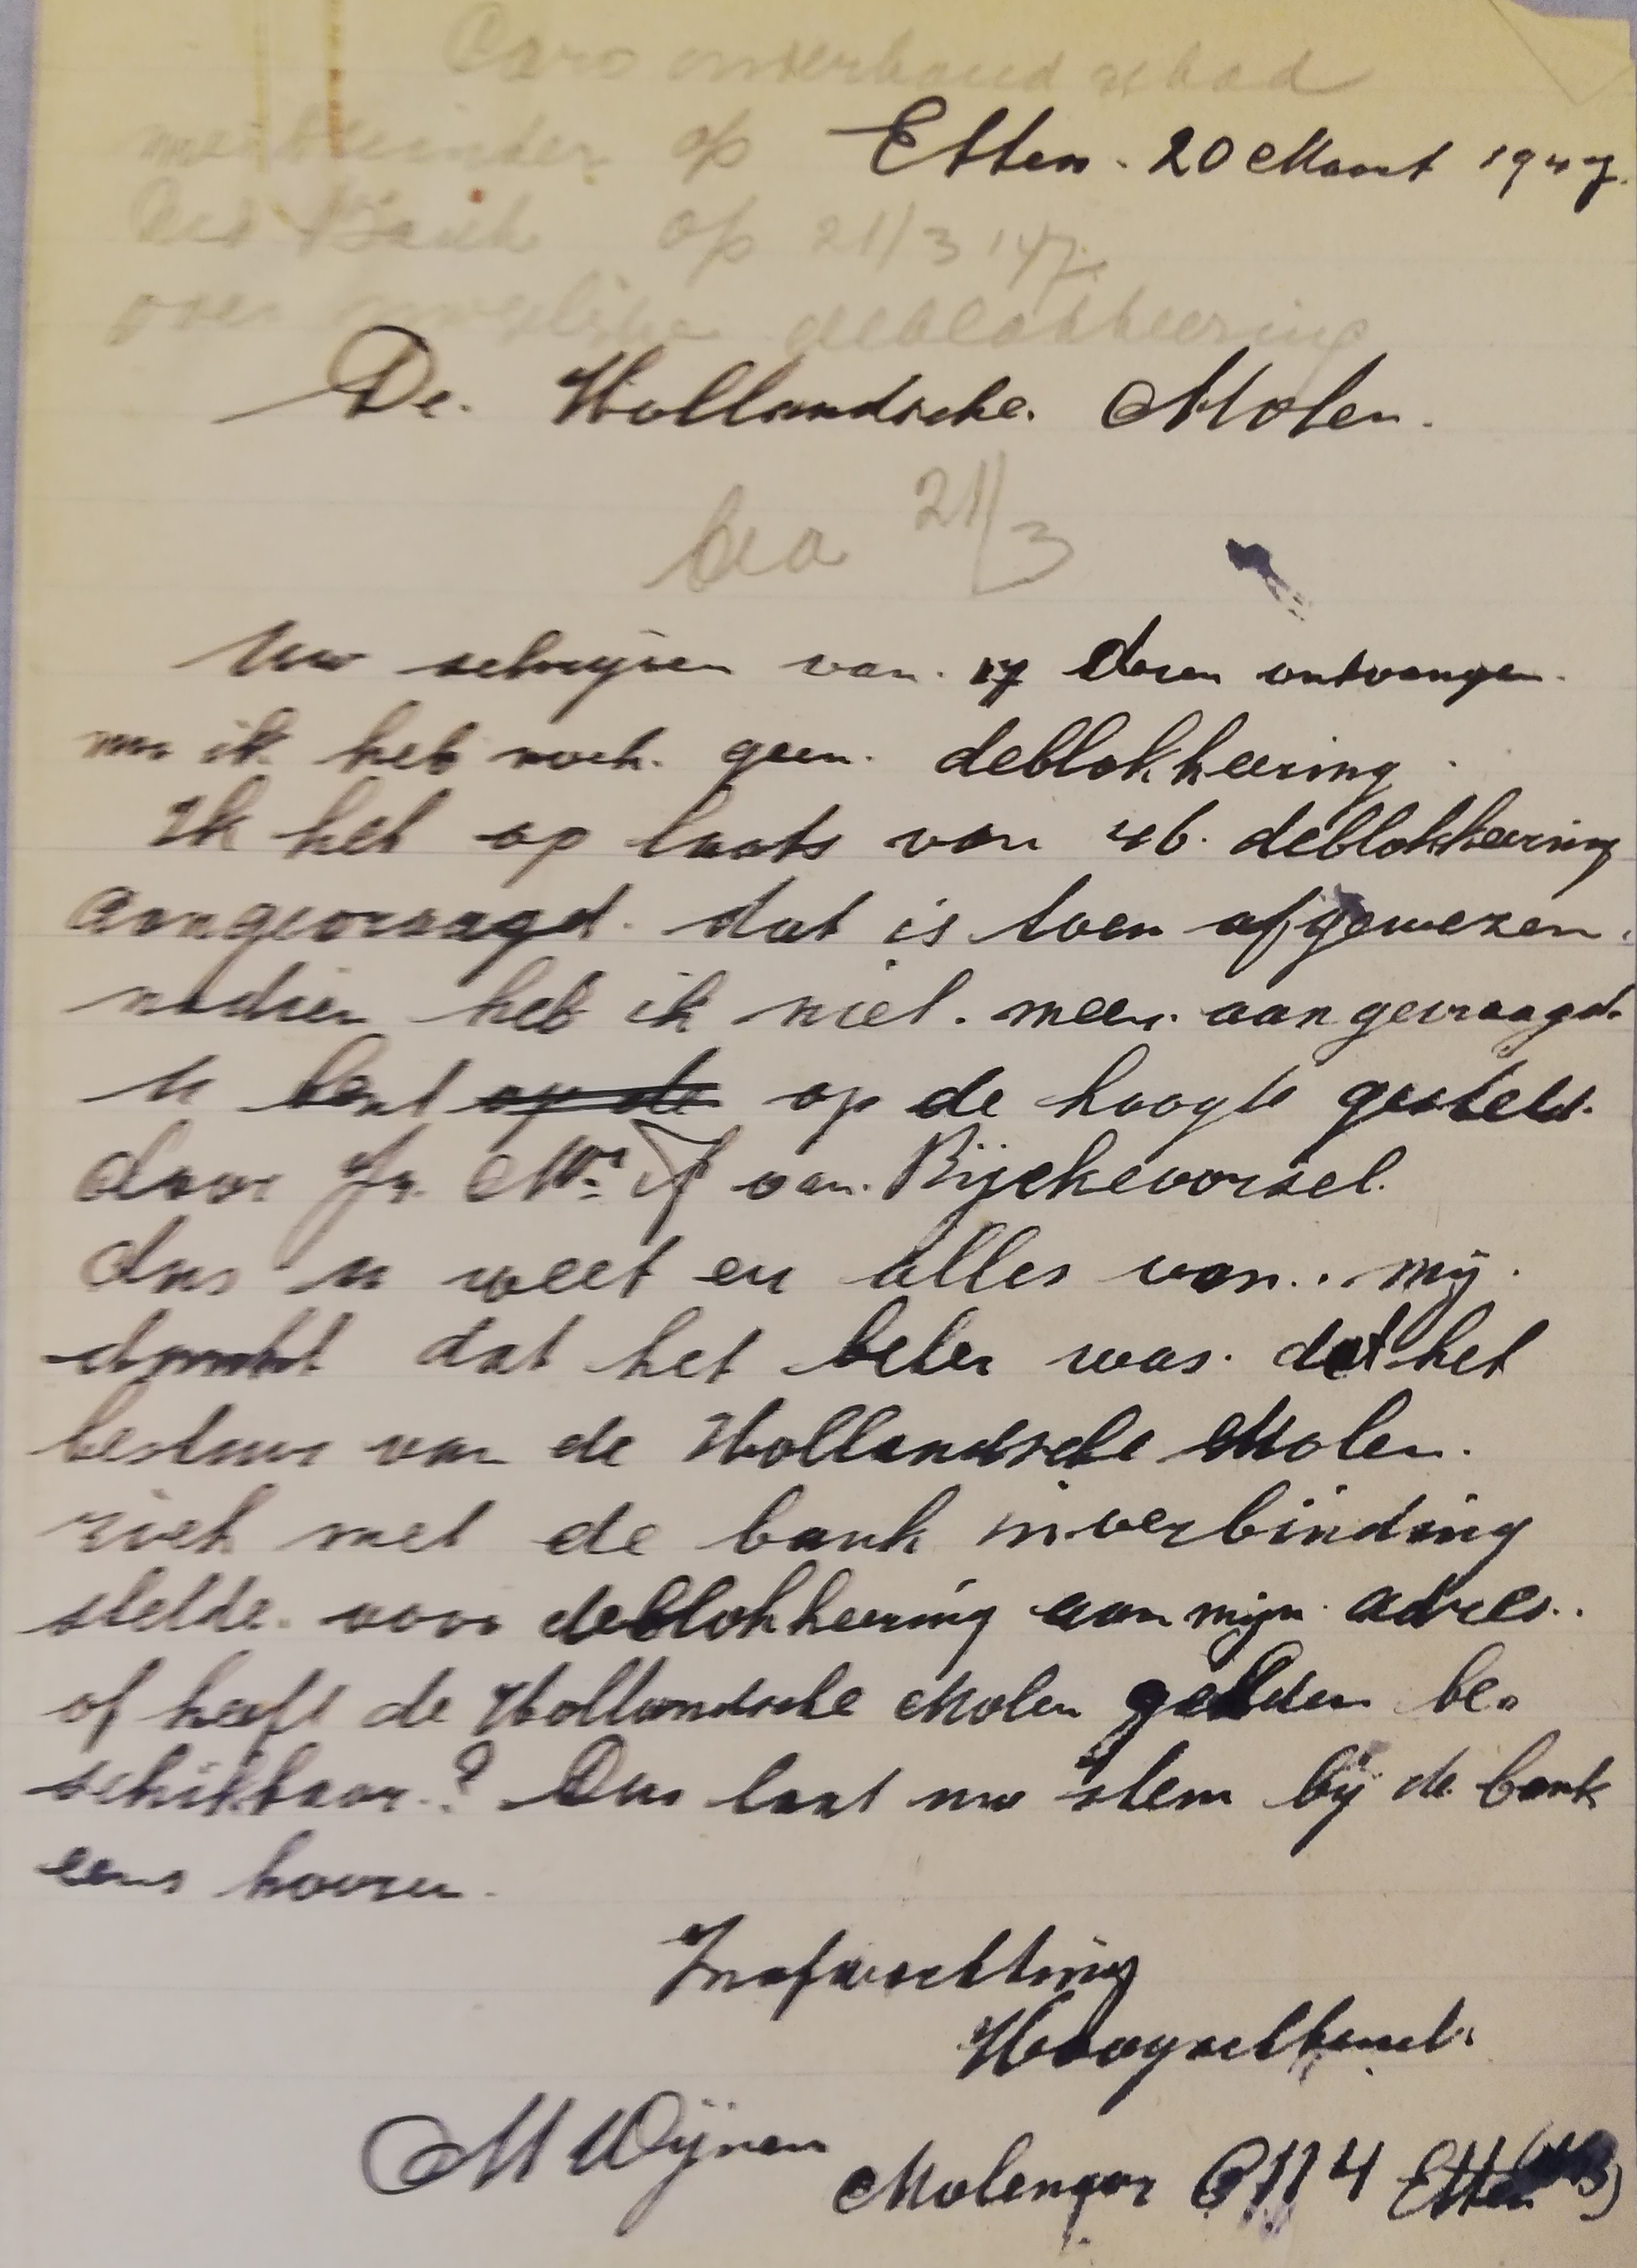 onderhoud gehad
op
Etten. 20 Maart 1947.
Ned Bank op 21/3 '47.
over mogelijke deblokkeering
De. Hollandsche. Molen.
21/3
Uw schrijven van. 17 dezer ontvangen.
ik heb noch. geen. deblokkeering.
Ik heb op laats van 46. deblokkeering
aangevraagd. dat is toen afgewezen.
nadien heb ik niet. meer. aangevraagd.
U bent op de op de hoogte gesteld.
door Jr. Mr. van. Rijckevorsel.
dus U weet er alles van.. mij.
dat het beter was. dat het
bestuur van de Hollandsche Molen.
zich met de bank in verbinding
stelde. voor deblokkeering aan mijn adres..
of heeft de Hollandsche Molen gelden be-
schikbaar.? Dus laat uw stem bij de bank
eens hooren.
Inafwachting
Hoogachtend.
M Wijnen Molenaar 114 Etten